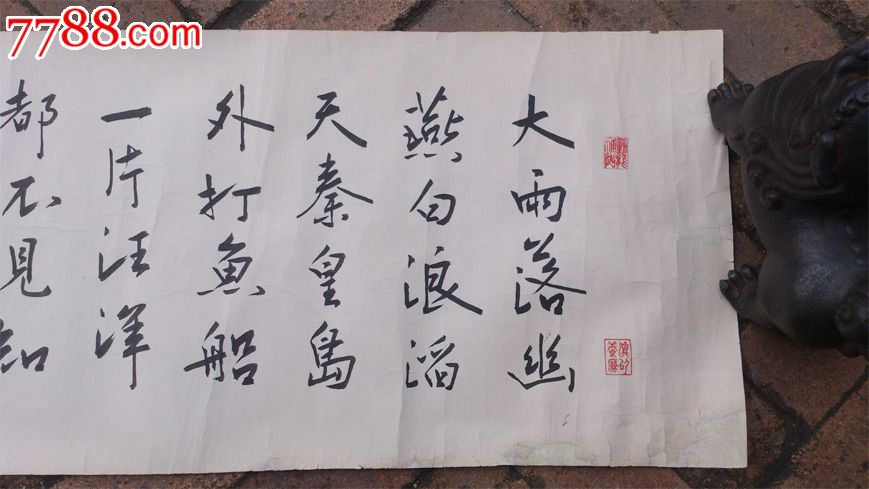 7788.com
大雨落幽
燕白浪滔
天秦皇島
外打魚船
一片汪洋
都不見知